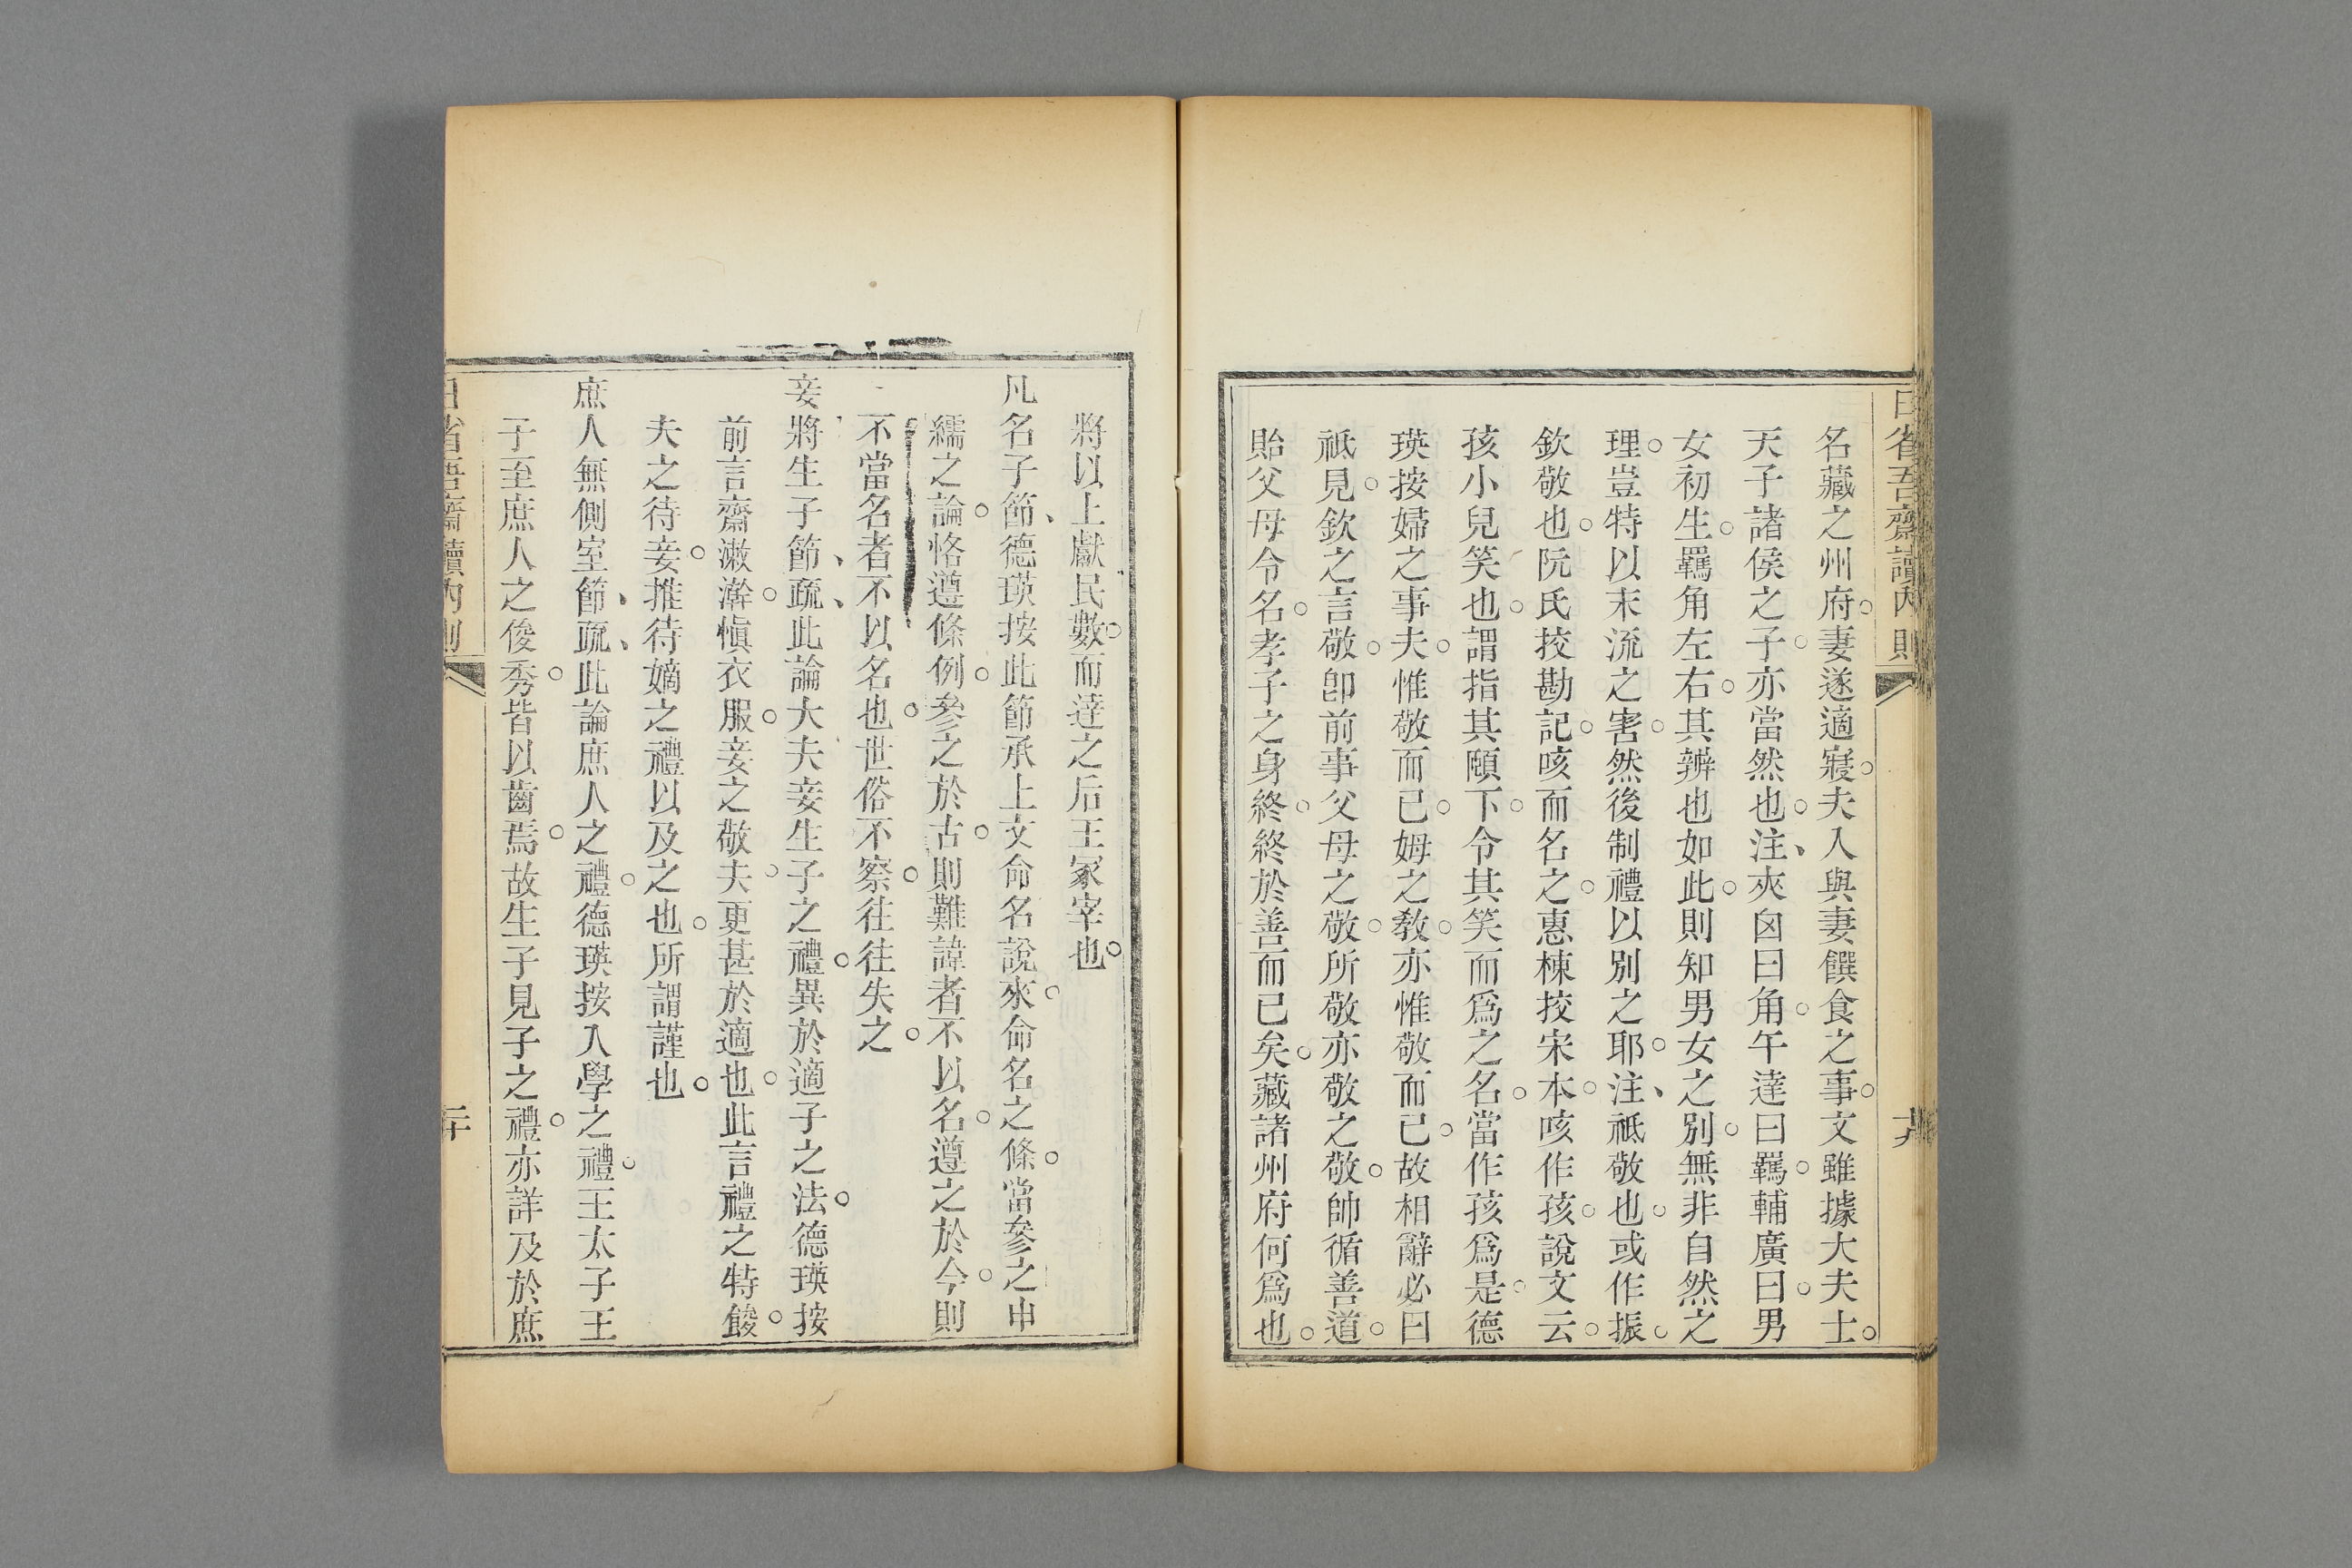 日省吾齋讀內則
十九
名藏之州府。妻遂適寢。夫人與妻饌食之事。文雖據大夫士。
天子諸侯之子。亦當然也。注、夾囟曰角。午達曰羈。輔廣曰。男
女初生。羈角左右。其辨也如此。則知男女之別。無非自然之
理。豈特以末流之害。然後制禮以別之耶。注、祗敬也。或作振。
欽敬也。阮氏挍勘記。咳而名之。惠棟挍宋本。咳作孩。說文云。
孩小兒笑也。謂指其頤下。令其笑而爲之名。當作孩爲是。德
瑛按婦之事夫。惟敬而已。姆之敎。亦惟敬而已。故相辭必曰
祗見。欽之言敬。卽前事父母之敬。所敬亦敬之敬。帥循善道。
貽父母令名。孝子之身終。終於善而已矣。藏諸州府何爲也。
將以上獻民數。而達之后王冢宰也。
凡名子節、德瑛按此節承上文命名說來。命名之條。當參之申
繻之論。恪遵條例。參之於古。則難諱者不以名。遵之於今。則
不當名者不以名也。世俗不察。往往失之。
妾將生子節、疏、此論大夫妾生子之禮。異於適子之法。德瑛按
前言齋漱澣。愼衣服。妾之敬夫。更甚於適也。此言禮之特餕。
夫之待妾。推待嫡之禮以及之也。所謂謹也。
庶人無側室節、疏、此論庶人之禮。德瑛按入學之禮。王太子王
子至庶人之俊秀。皆以齒焉。故生子見子之禮。亦詳及於庶
日省吾齋讀內則
二十